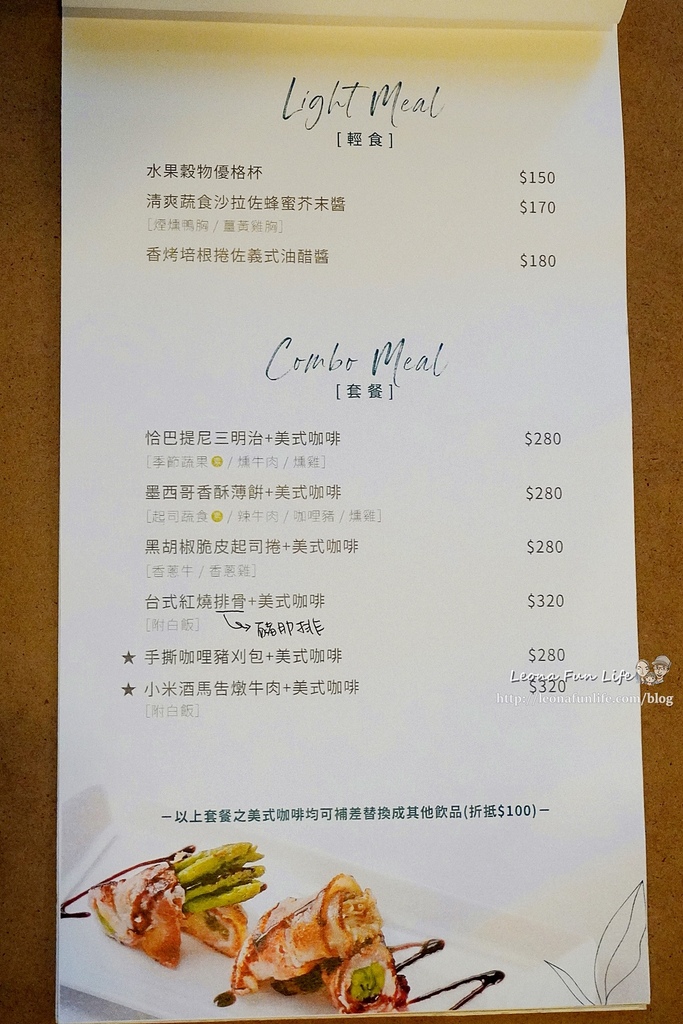 Light Meal
[輕食]
水果穀物優格杯 $150
清爽蔬食沙拉佐蜂蜜芥末醬 $170
[煙燻鴨胸 / 薑黃雞胸]
香烤培根捲佐義式油醋醬 $180
Combo Meal
[套餐]
恰巴提尼三明治+美式咖啡 $280
[季節蔬果 / 燻牛肉 / 燻雞]
墨西哥香酥薄餅+美式咖啡 $280
[起司蔬食 / 辣牛肉 / 咖哩豬 / 燻雞]
黑胡椒脆皮起司捲+美式咖啡 $280
[香蔥牛 / 香蔥雞]
台式紅燒排骨+美式咖啡 $320
[附白飯]
豬肋排
★ 手撕咖哩豬刈包+美式咖啡 $280
★ 小米酒馬告燉牛肉+美式咖啡 $320
[附白飯]
Leona Fun Life
http://leonafunlife.com/blog
－以上套餐之美式咖啡均可補差替換成其他飲品(折抵$100)－